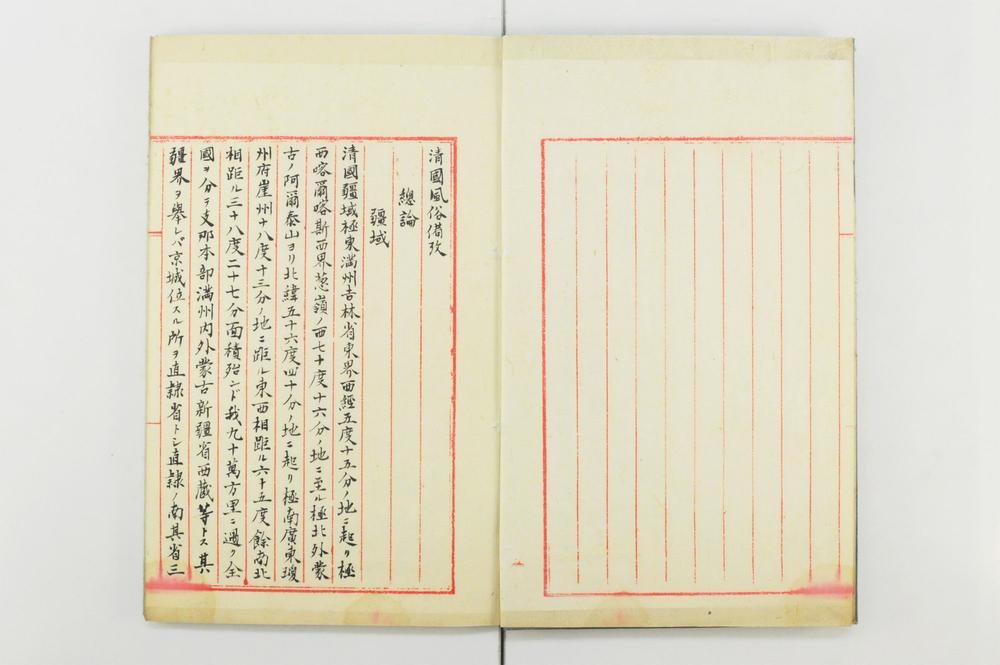 清國風俗備攷
總論
疆域
清國疆域極東滿州吉林省東界西經五度十五分ノ地ニ起リ極
西喀爾喀斯西界葱嶺ノ西七十度十六分ノ地ニ至ル極北外蒙
古ノ阿爾泰山ヨリ北緯五十六度四十分ノ地ニ起リ極南廣東瓊
州府崖州十八度十三分ノ地ニ距ル東西相距ル六十五度餘南北
相距ル三十八度二十七分面積殆ンド我九十萬方里ニ過ク全
國ヲ分テ支那本部滿州内外蒙古新疆省西藏等トス其
疆界ヲ舉レバ京城位スル所ヲ直隸省トシ直隸ノ南其省三